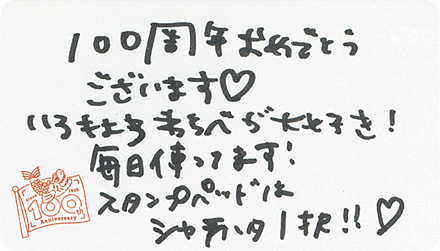 100周年おめでとう
ございます♡
いろもちもちべぢ大好き!
毎日使ってます!
スタンプパッドは
シャチハタ1択!!♡
100th
Anniversary